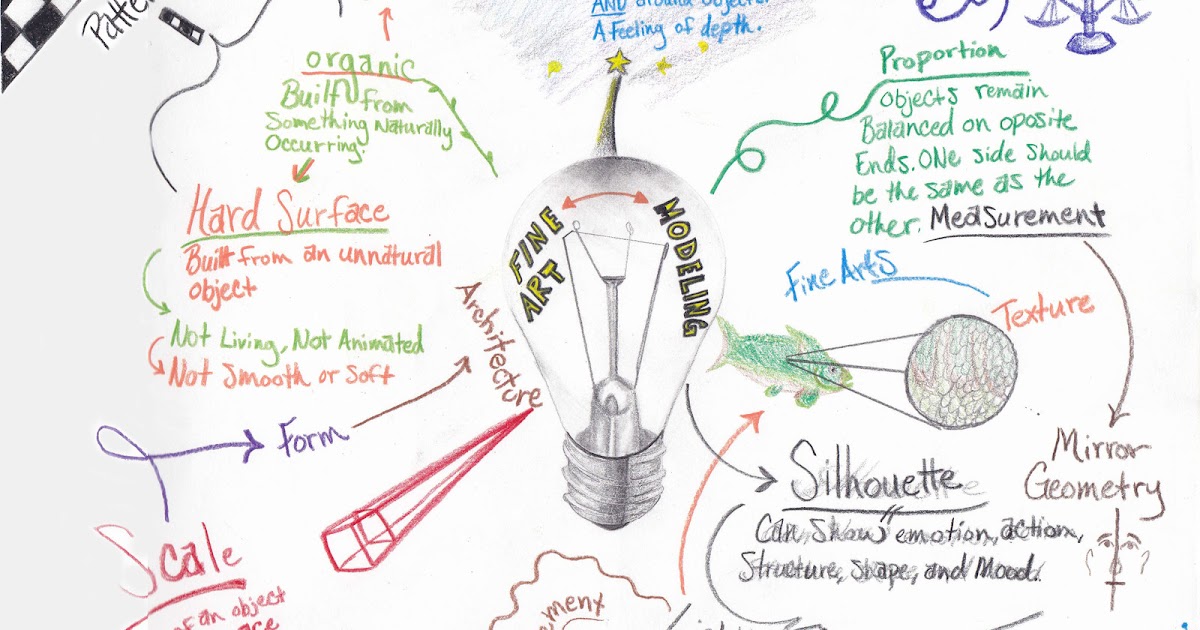 Patte
AND around objects.
A Feeling of depth.
organic
Built from
Something Naturally
Occurring.
Hard Surface
Built from an unnatural
object
Not Living, Not Animated
Not Smooth or Soft
Form
Architecture
Scale
of an object
FINE
ART
MODELING
Proportion
objects remain
Balanced on oposite
Ends. ONe side should
be the same as the
other. Measurement
Fine Arts
Texture
Mirror
Geometry
Silhouette
Can show emotion, action,
Structure, shape, and Mood.
ement